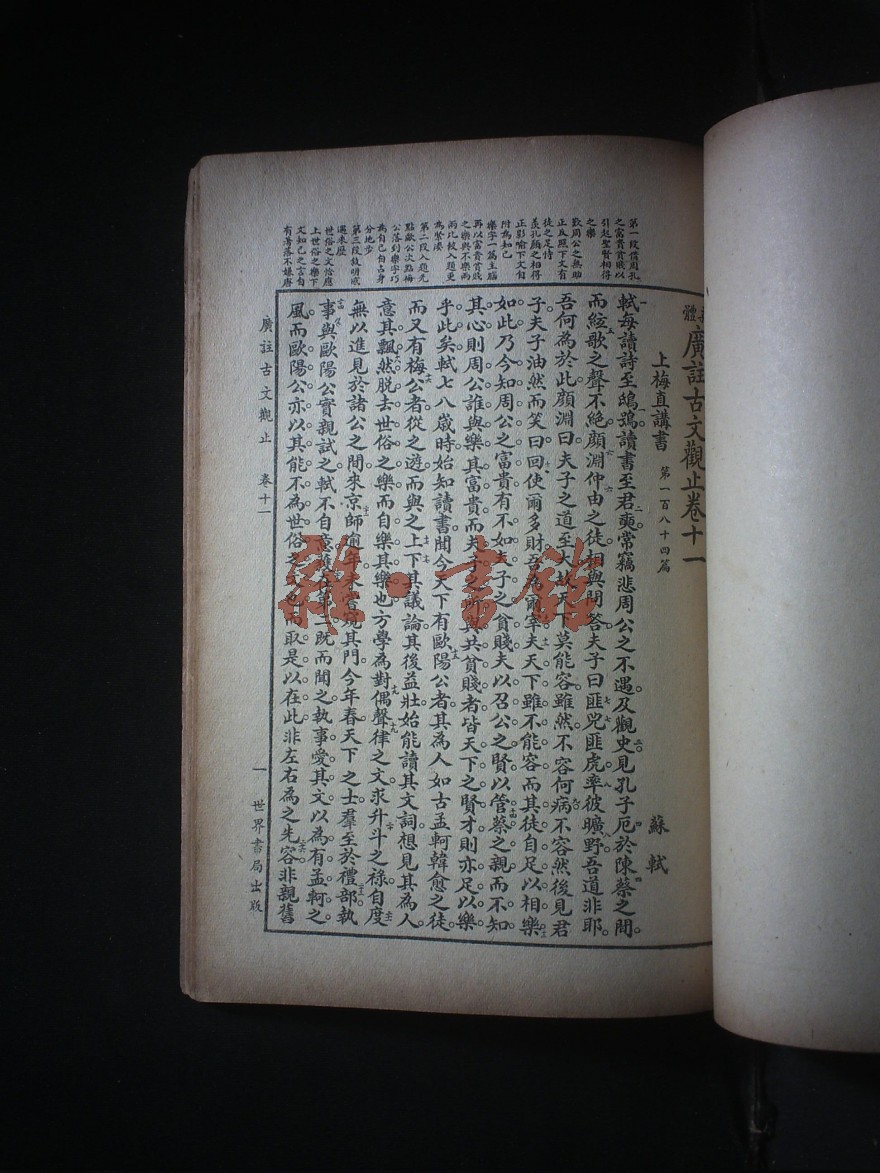 體廣註古文觀止卷十一
上梅直講書 第一百八十四篇 蘇軾
軾每讀詩至鴟鴞讀書至君奭常竊悲周公之不遇及觀史見孔子厄於陳蔡之間
而絃歌之聲不絕顏淵仲由之徒相與問答夫子曰匪兕匪虎率彼曠野吾道非耶
吾何為於此顏淵曰夫子之道至大故天下莫能容雖然不容何病不容然後見君
子夫子油然而笑曰回使爾多財吾為爾宰夫天下雖不能容而其徒自足以相樂
如此乃今知周公之富貴有不如夫子之貧賤夫以召公之賢以管蔡之親而不知
其心則周公誰與樂其富貴而夫子之所與共貧賤者皆天下之賢才則亦足以樂
乎此矣軾七八歲時始知讀書聞今天下有歐陽公者其為人如古孟軻韓愈之徒
而又有梅公者從之遊而與之上下其議論其後益壯始能讀其文詞想見其為人
意其飄然脫去世俗之樂而自樂其樂也方學為對偶聲律之文求升斗之祿自度
無以進見於諸公之間來京師逾年未嘗窺其門今年春天下之士羣至於禮部執
事與歐陽公實親試之軾不自意獲在第二既而聞之執事愛其文以為有孟軻之
風而歐陽公亦以其能不為世俗之文也而取是以在此非左右為之先容非親舊
第一段借周孔
之富貴貧賤以
引起聖賢相得
之樂
歎周公之無助
正反照下文有
徒之足恃
羨孔顏之相得
正影喻下文自
附為知己
樂字一篇主腦
再以富貴貧賤
之樂與不樂兩
兩比較入題更
為緊湊
第二段入題先
點歐公次點梅
公落到樂字巧
為自己自占身
分地步
第三段敘明戚
遇來歷
世俗之文恰應
上世俗之樂下
文知己之言自
有著落不嫌唐
廣註古文觀止 卷十一 一 世界書局出版
雜·書館